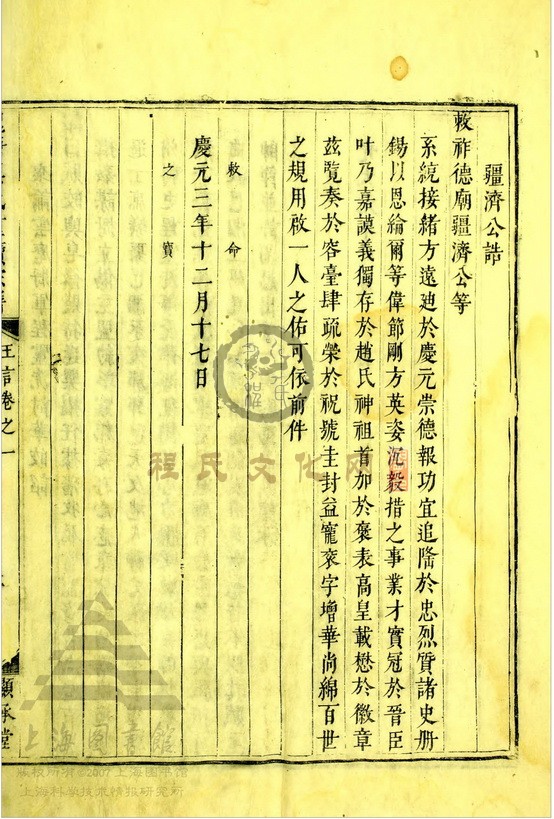 疆濟公誥
敕祚德廟疆濟公等
系統接緒方遠廸於慶元崇德報功宜追隆於忠烈質諸史册
錫以恩綸爾等偉節剛方英姿沉毅措之事業才實冠於晉臣
叶乃嘉謨義獨存於趙氏神祖首加於褒表高皇載懋於徽章
茲覽奏於容臺肆疏榮於祝號圭封益寵袞字增華尚綿百世
之規用啟一人之佑可依前件
敕命
慶元三年十二月十七日
之寶
王言卷之一
顯承堂
程氏文化网
上海圖書館
版权所有©2007上海图书馆
上海科学技术情报研究所